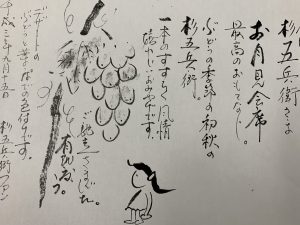 杉五兵衛さま
お月見会席
最高のおもてなし。
ぶどうの季節の初秋の
杉五兵衛
一本のすすき 風情
嬉しいおみやです。
ご馳走さまでした。
有難う。
デザートの
ぶどうと葉っぱでの色付けです。
平成三年九月十五日
杉五兵衛ファン